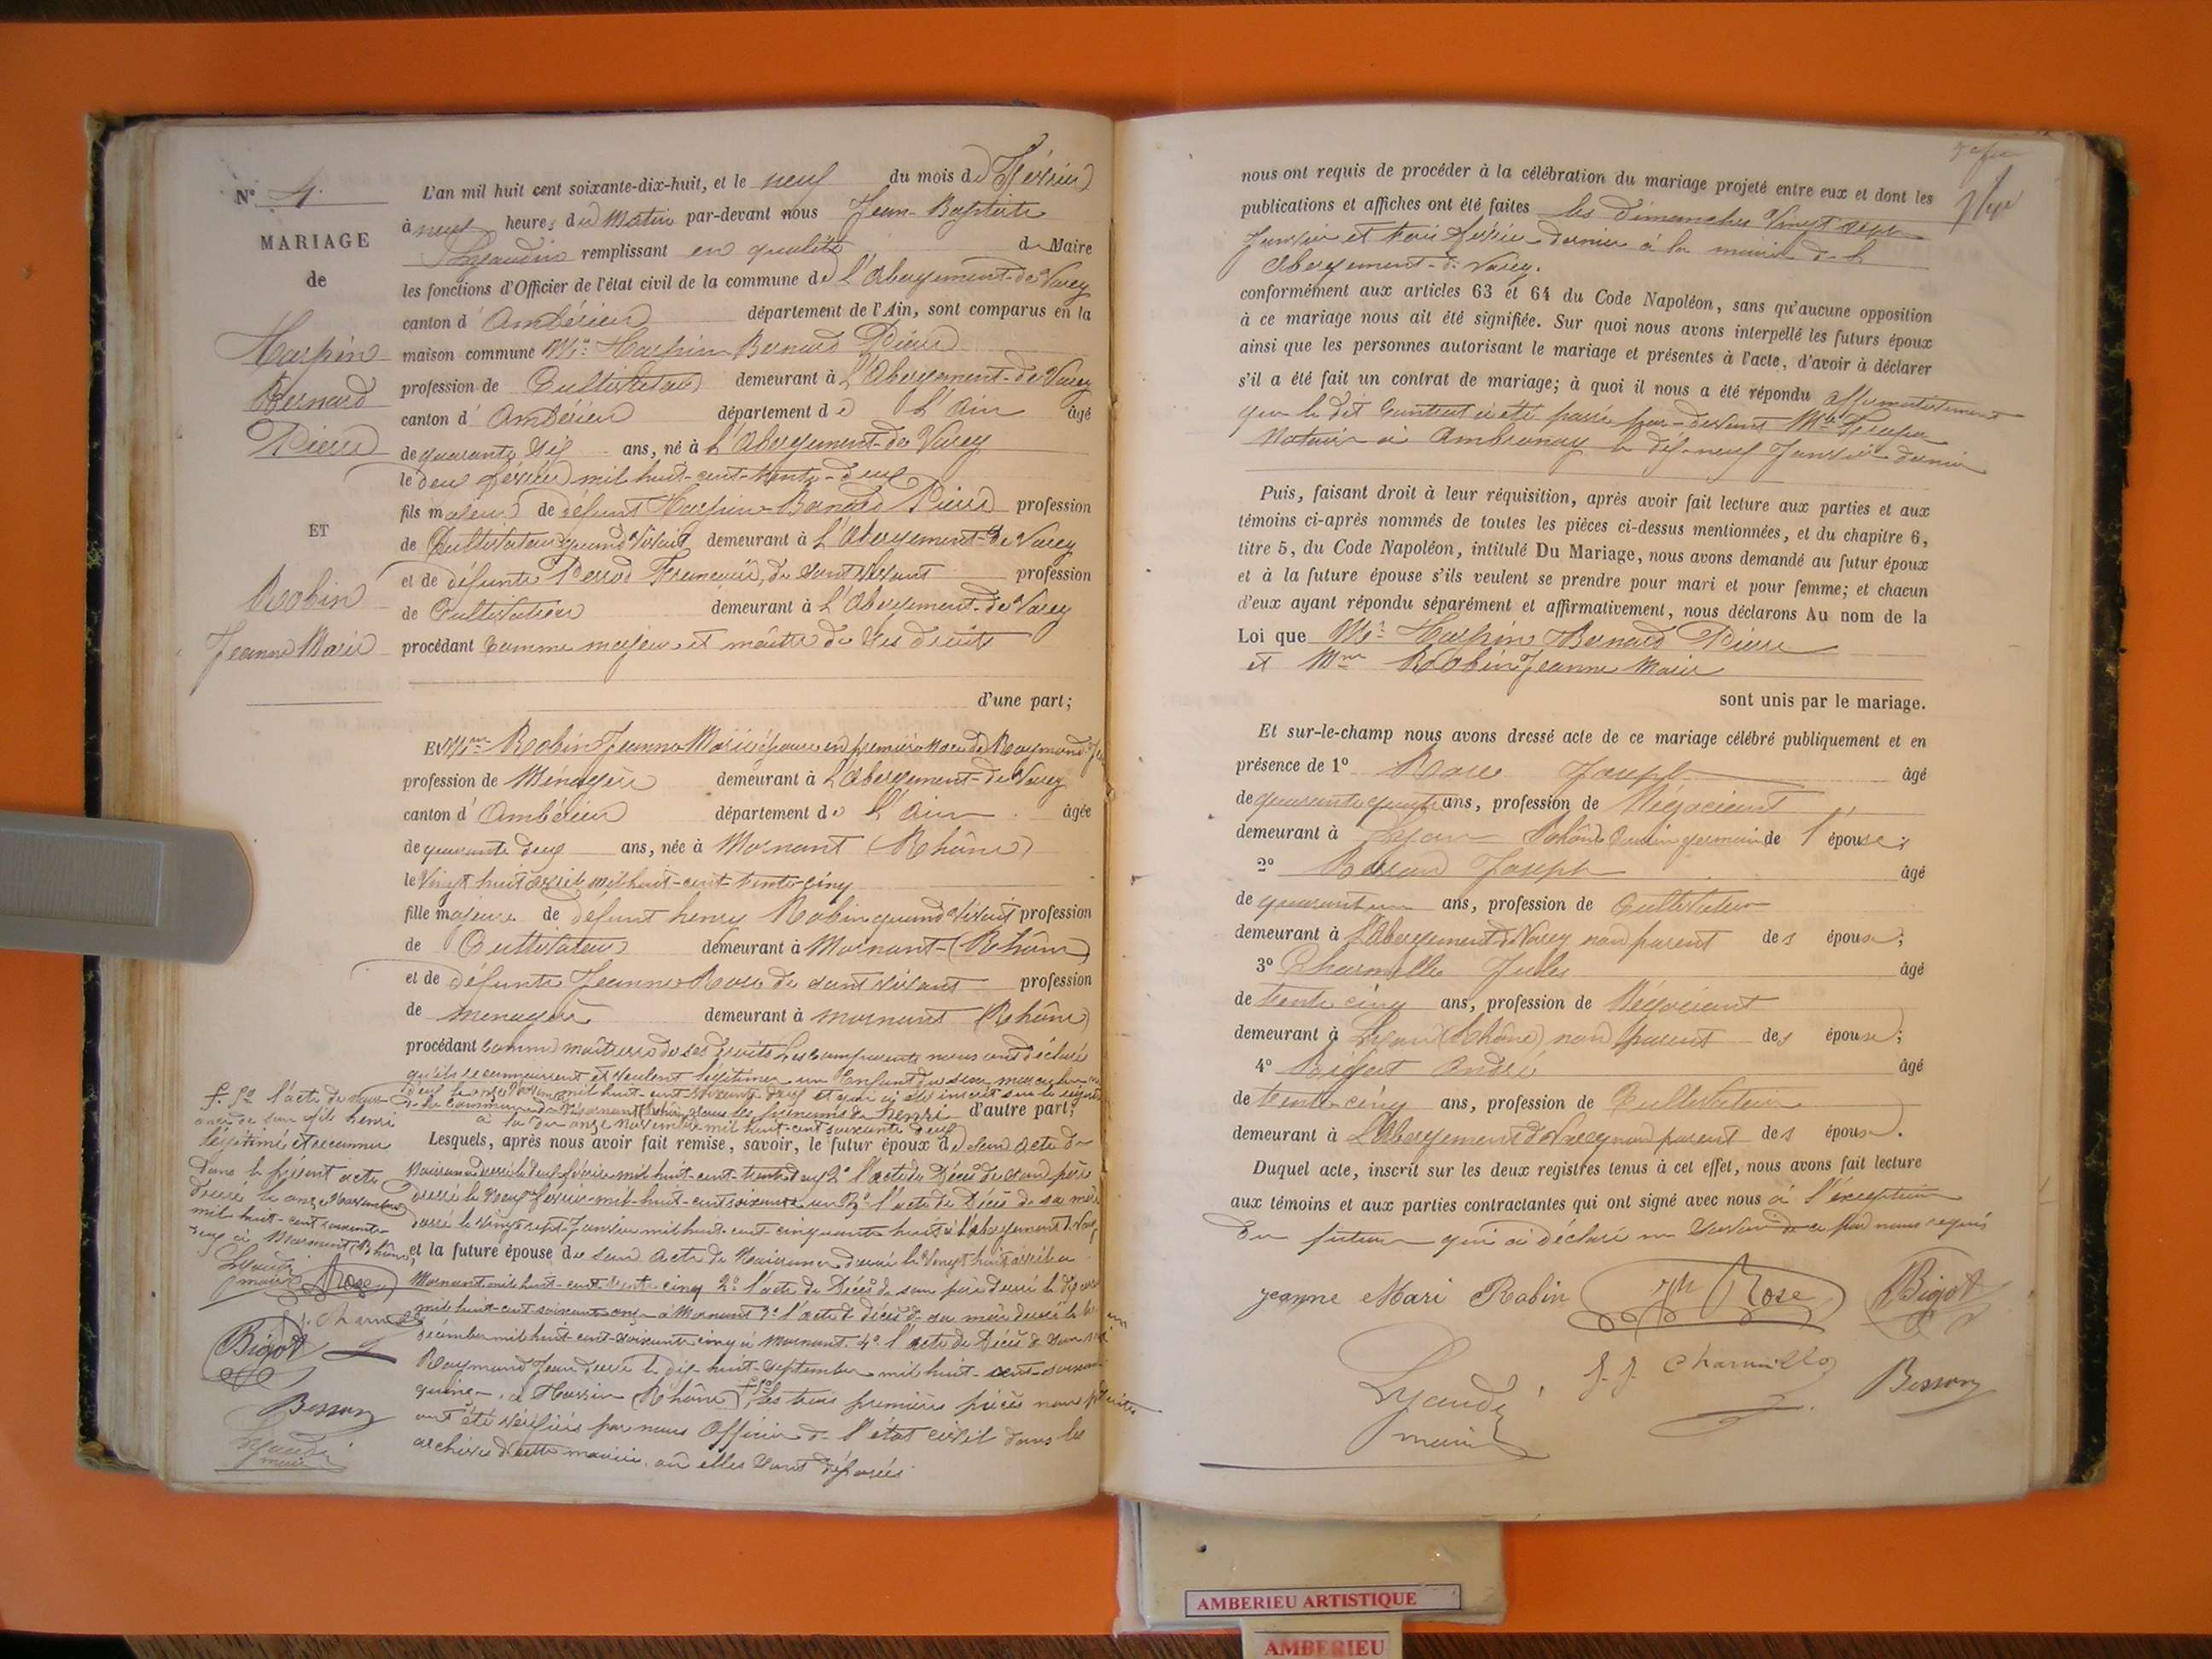 N° 4.
MARIAGE
de
Harpin
Bernard
Pierre
ET
Robin
Jeanne Marie
L'an mil huit cent soixante-dix-huit, et le neuf du mois de Février
à neuf heures du Matin par-devant nous Jean-Baptiste
remplissant en qualité de Maire
les fonctions d'Officier de l'état civil de la commune de L'Abergement-de-Varey
canton d' Ambérieu département de l'Ain, sont comparus en la
maison commune Mr Harpin Bernard Pierre
profession de Cultivateur demeurant à L'Abergement-de-Varey
canton d' Ambérieu département de L'Ain âgé
de quarante six ans, né à L'Abergement-de Varey
le deux février mil huit-cent-trente-deux
fils majeur de défunt Harpin Bernard Pierre profession
de Cultivateur quand vivait demeurant à L'Abergement-de Varey
et de défunte Perrod Françoise, de son vivant profession
de Cultivatrice demeurant à L'Abergement-de Varey
procédant comme majeur et maître de ses droits
d'une part;
Et Mme Robin Jeanne Marie épouse en première noce de Raymond
profession de Ménagère demeurant à L'Abergement-de Varey
canton d' Ambérieu département de L'Ain âgée
de quarante deux ans, née à Mornant (Rhône)
le Vingt huit avril mil huit-cent-trente-cinq
fille majeure de défunt henry Robin quand vivait profession
de Cultivateur demeurant à Mornant-(Rhône)
et de défunte Jeanne Rose de son vivant profession
de menagère demeurant à Mornant (Rhône)
procédant comme maîtresse de ses droits Les comparants nous ont déclaré
qu'ils reconnaissent et veulent légitimer un Enfant du sexe masculin
né le onze Novembre mil huit-cent soixante deux et qui a été inscrit sur les registres
de la commune de Mornant (Rhône) sous les prénoms de henri d'autre part;
à la date du onze Novembre mil huit-cent soixante deux
Lesquels, après nous avoir fait remise, savoir, le futur époux de son acte de
Naissance dressé le deux février mil huit-cent-trente deux 2° l'acte de Décès de son père
dressé le Neuf février mil-huit-cent soixante un 3° l'acte de Décès de sa mère
dressé le vingt sept Janvier mil huit-cent cinquante huit à l'abergement de Varey
et la future épouse de son Acte de Naissance dressé le Vingt huit avril a
Mornant mil huit-cent trente-cinq 2° l'acte de Décès de son père dressé le dix
mil huit-cent soixante onze à Mornant 3° l'acte de décès de sa mère dressé le
décembre mil huit-cent-soixante cinq à Mornant. 4° l'acte de Décès de son
Raymond Jean dressé le dix huit-septembre mil huit-cent-soixante
quinze, a (Rhône) Les trois premières pièces non produites
ont été vérifiées par nous Officier de l'état civil dans les
archives de cette mairie où elles sont déposées
5° l'acte de naissance de son fils henri
légitimé et reconnu
dans le présent acte
dressé le onze Novembre
mil huit-cent soixante-
deux à Mornant (Rhône)
maire Rose
Bigot
Besson
maire
nous ont requis de procéder à la célébration du mariage projeté entre eux et dont les
publications et affiches ont été faites les dimanches Vingt sept
Janvier et trois février dernier à la mairie de l'
Abergement-de Varey.
conformément aux articles 63 et 64 du Code Napoléon, sans qu'aucune opposition
à ce mariage nous ait été signifiée. Sur quoi nous avons interpellé les futurs époux
ainsi que les personnes autorisant le mariage et présentes à l'acte, d'avoir à déclarer
s'il a été fait un contrat de mariage; à quoi il nous a été répondu affirmativement
que le dit Contrat a été passé par-devant Me
Notaire à Ambronay le dix-neuf Janvier dernier
Puis, faisant droit à leur réquisition, après avoir fait lecture aux parties et aux
témoins ci-après nommés de toutes les pièces ci-dessus mentionnées, et du chapitre 6,
titre 5, du Code Napoléon, intitulé Du Mariage, nous avons demandé au futur époux
et à la future épouse s'ils veulent se prendre pour mari et pour femme; et chacun
d'eux ayant répondu séparément et affirmativement, nous déclarons Au nom de la
Loi que Mr Harpin Bernard Pierre
et Mme Robin Jeanne Marie
sont unis par le mariage.
Et sur-le-champ nous avons dressé acte de ce mariage célébré publiquement et en
présence de 1° Rose Joseph âgé
de quarante quatre ans, profession de Négociant
demeurant à Lyon Rhône Cousin germain de l'épouse;
2° Joseph âgé
de quarante ans, profession de Cultivateur
demeurant à L'Abergement de Varey non parent des époux;
3° Charmille Jules âgé
de trente cinq ans, profession de Négociant
demeurant à Lyon (Rhône) non parent des époux;
4° Bigot André âgé
de trente-cinq ans, profession de Cultivateur
demeurant à L'Abergement de Varey non parent des époux.
Duquel acte, inscrit sur les deux registres tenus à cet effet, nous avons fait lecture
aux témoins et aux parties contractantes qui ont signé avec nous à l'exception
du futur qui a déclaré ne savoir de ce par nous requis
jeanne Mari Robin Jh Rose Bigot
J. J. Charmille Besson
maire
AMBERIEU ARTISTIQUE
AMBERIEU